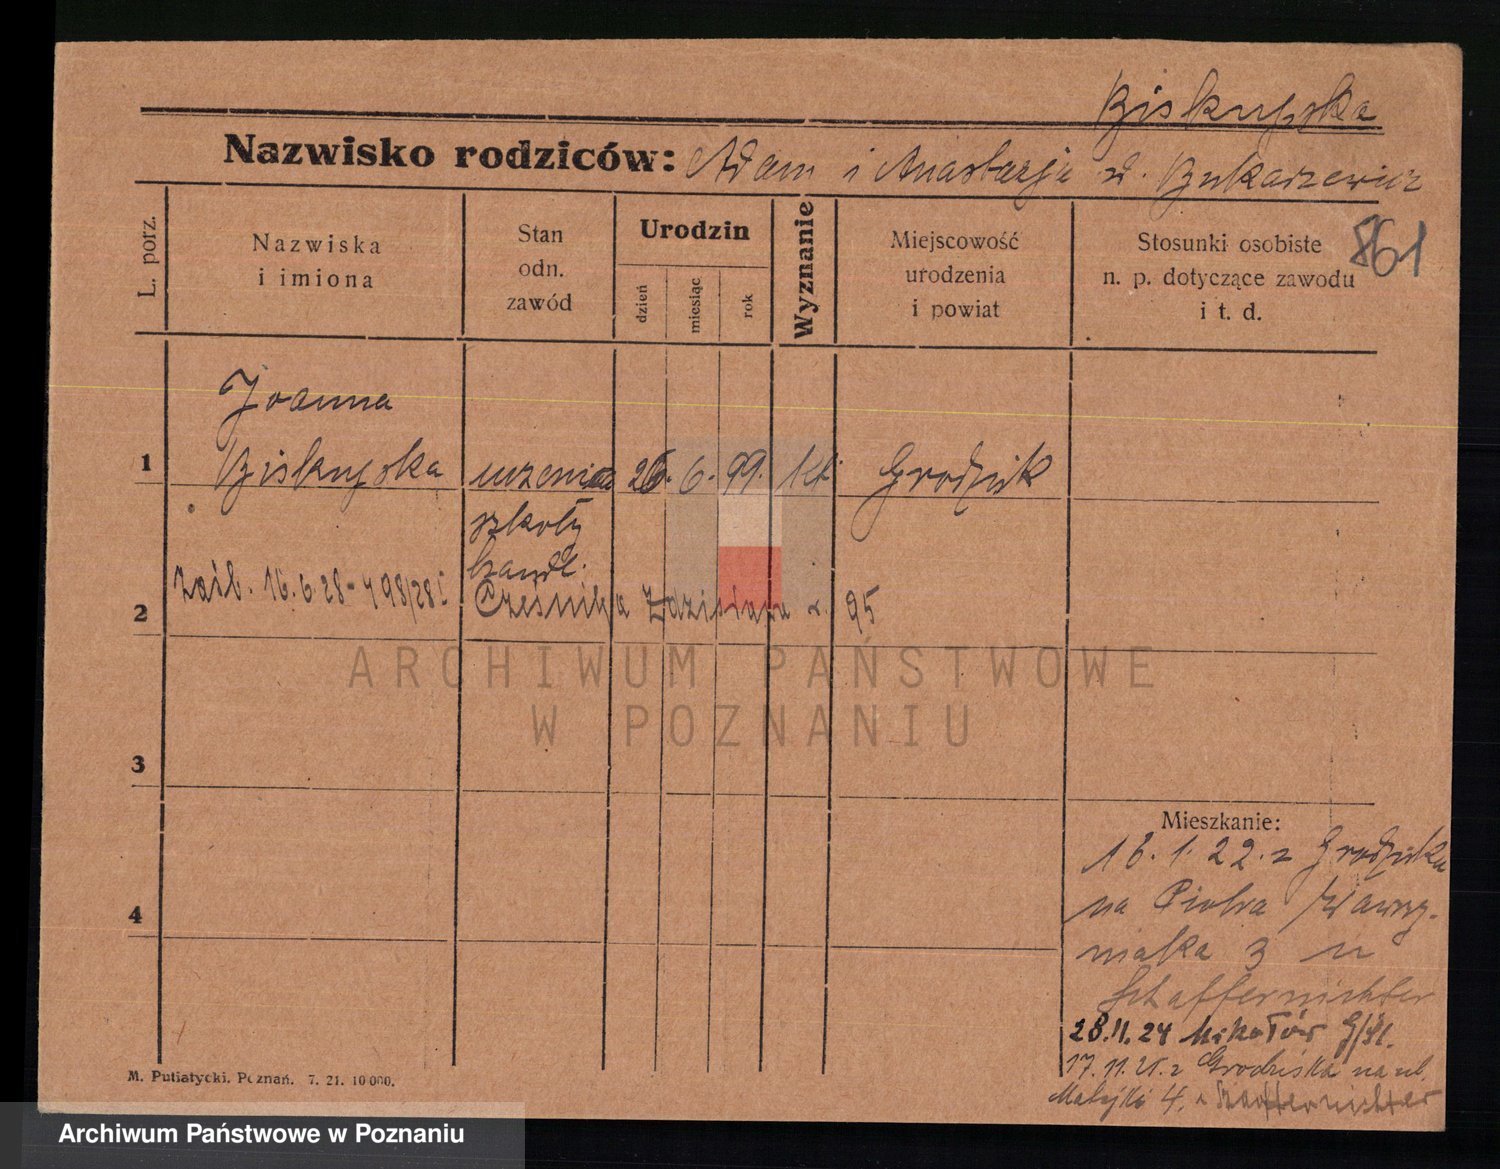 Biskupska
Nazwisko rodziców: Adam i Anastazja z d. Bukarzewicz
861
L. porz.
Nazwiska
i imiona
Stan
odn.
zawód
Urodzin
dzień
miesiąc
rok
Wyznanie
Miejscowość
urodzenia
i powiat
Stosunki osobiste
n. p. dotyczące zawodu
i t. d.
Joanna
1 Biskupska uczenica 26. 6. 99. kt. Grodzisk
szkoły
handl.
Zaśb. 16.6.28 - 498/28
2 Cześnika Zdzisława r. 95
ARCHIWUM PAŃSTWOWE
W POZNANIU
3
Mieszkanie:
16. 1. 22. z Grodziska
na Piotra Wawrzy-
niaka 3 u
4
Schaffernichter
28.11.24 Mikołów G/Śl.
17.11.21. z Grodziska na ul.
Matejki 4. u Schaffernichter
M. Putiatycki. Poznań. 7. 21. 10 000.
Archiwum Państwowe w Poznaniu